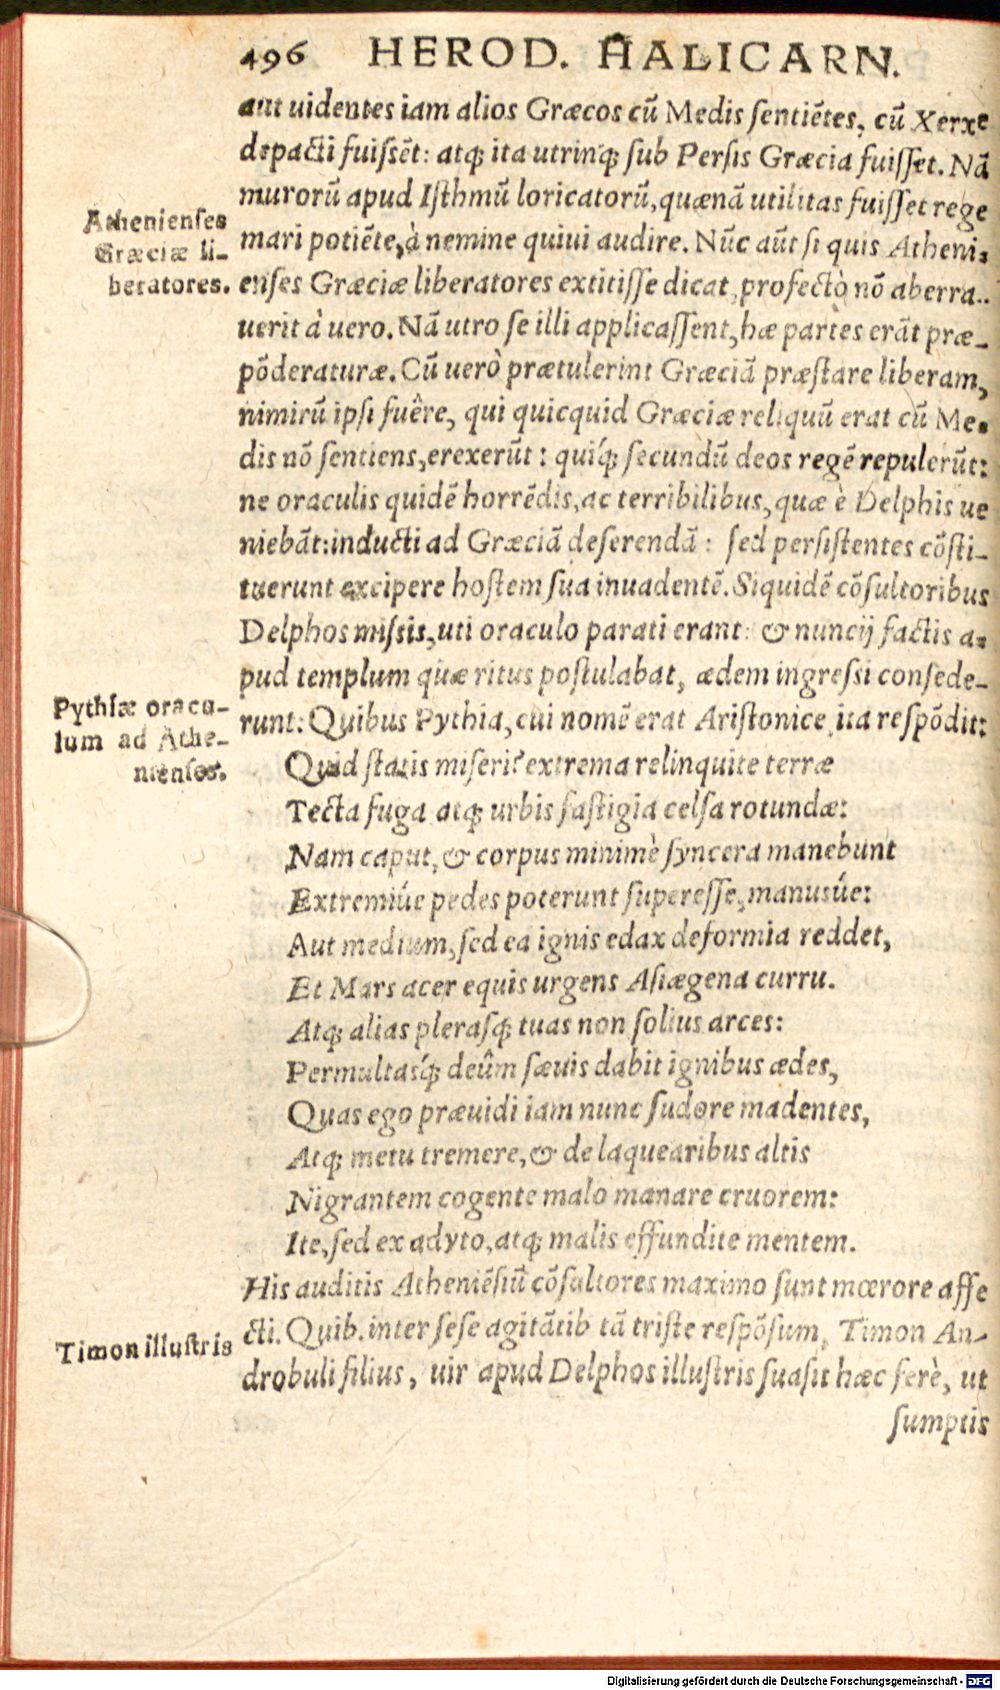 496 HEROD. HALICARN.
aut uidentes iam alios Græcos cũ Medis ſentiẽtes, cũ Xerxe
depacti fuiſſẽt: atq́; ita utrinq́; ſub Perſis Græcia fuiſſet. Nã
murorũ apud Iſthmũ loricatorũ, quænã utilitas fuiſſet rege
Athenienſes
Græciæ li-
beratores.
mari potiẽte, à nemine quiui audire. Nũc aũt ſi quis Atheni-
enſes Græciæ liberatores extitiſſe dicat, profectò nõ aberra-
uerit à uero. Nã utro ſe illi applicaſſent, hæ partes erãt præ-
põderaturæ. Cũ uerò prætulerint Græciã præſtare liberam,
nimirũ ipſi fuêre, qui quicquid Græciæ reliquũ erat cũ Me-
dis nõ ſentiens, erexerũt: quíq; ſecundũ deos regẽ repulerũt:
ne oraculis quidẽ horrẽdis, ac terribilibus, quæ è Delphis ue
niebãt: inducti ad Græciã deſerendã: ſed perſiſtentes cõſti-
tuerunt excipere hoſtem ſua inuadentẽ. Siquidẽ cõſultoribus
Delphos miſsis, uti oraculo parati erant: & nuncij factis a-
pud templum quæ ritus poſtulabat, ædem ingreſsi conſede-
Pythiæ oracu-
lum ad Athe-
nienſes.
runt: Quibus Pythia, cui nomẽ erat Ariſtonice, ita reſpõdit:
Quid ſtatis miſeri? extrema relinquite terræ
Tecta fuga atq; urbis faſtigia celſa rotundæ:
Nam caput, & corpus minimè ſyncera manebunt
Extremiúe pedes poterunt ſupereſſe, manusúe:
Aut medium, ſed ea ignis edax deformia reddet,
Et Mars acer equis urgens Aſiægena curru.
Atq; alias pleraſq; tuas non ſolius arces:
Permultasq́; deûm ſæuis dabit ignibus ædes,
Quas ego præuidi iam nunc ſudore madentes,
Atq; metu tremere, & de laquearibus altis
Nigrantem cogente malo manare cruorem:
Ite, ſed ex adyto, atq; malis effundite mentem.
His auditis Atheniẽſiũ cõſultores maximo ſunt mœrore affe
cti. Quib. inter ſeſe agitãtib tã triſte reſpõſum, Timon An-
Timon illuſtris
drobuli filius, uir apud Delphos illuſtris ſuaſit hæc ferè, ut
ſumptis
Digitalisierung gefördert durch die Deutsche Forschungsgemeinschaft - DFG